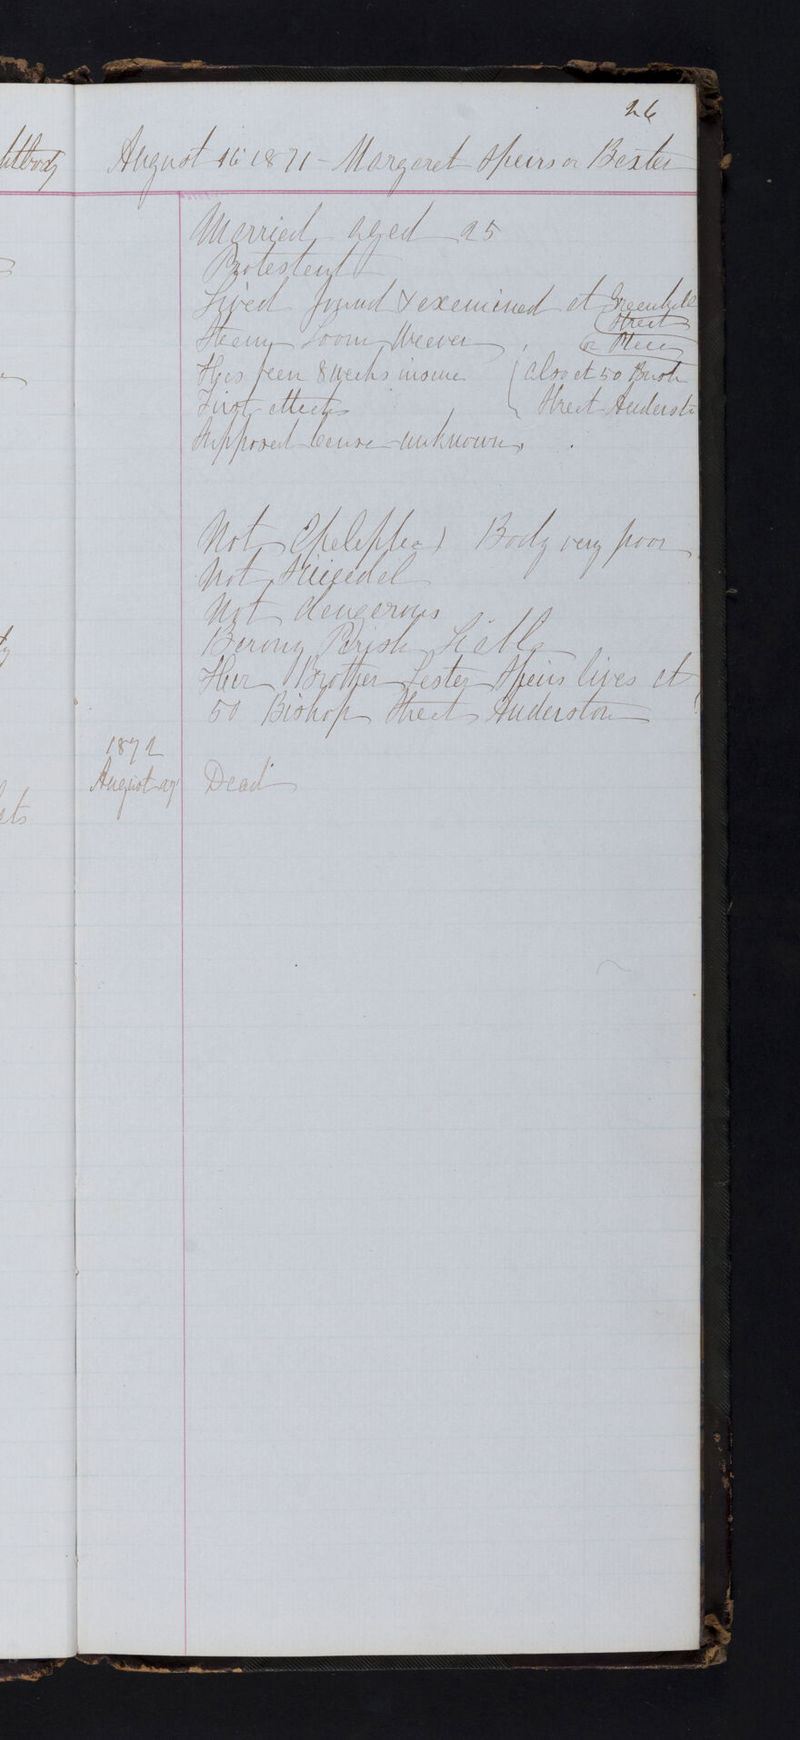 26
August 16 1871 - Margaret Speirs or Baxter
Married aged 25
Protestant
Lived found & examined at Greenhill
Street
or Place
Steam Loom Weaver
Has been 8 weeks insane
First attack
also at 50 Bish
Street Anderst
Supposed Cause unknown
Not Epileptic) Body very poor
Not Suicidal
Not dangerous
Barony Parish
Her Brother Speirs lives at
50 Bishop Street Anderston
1872
August 27 Dead